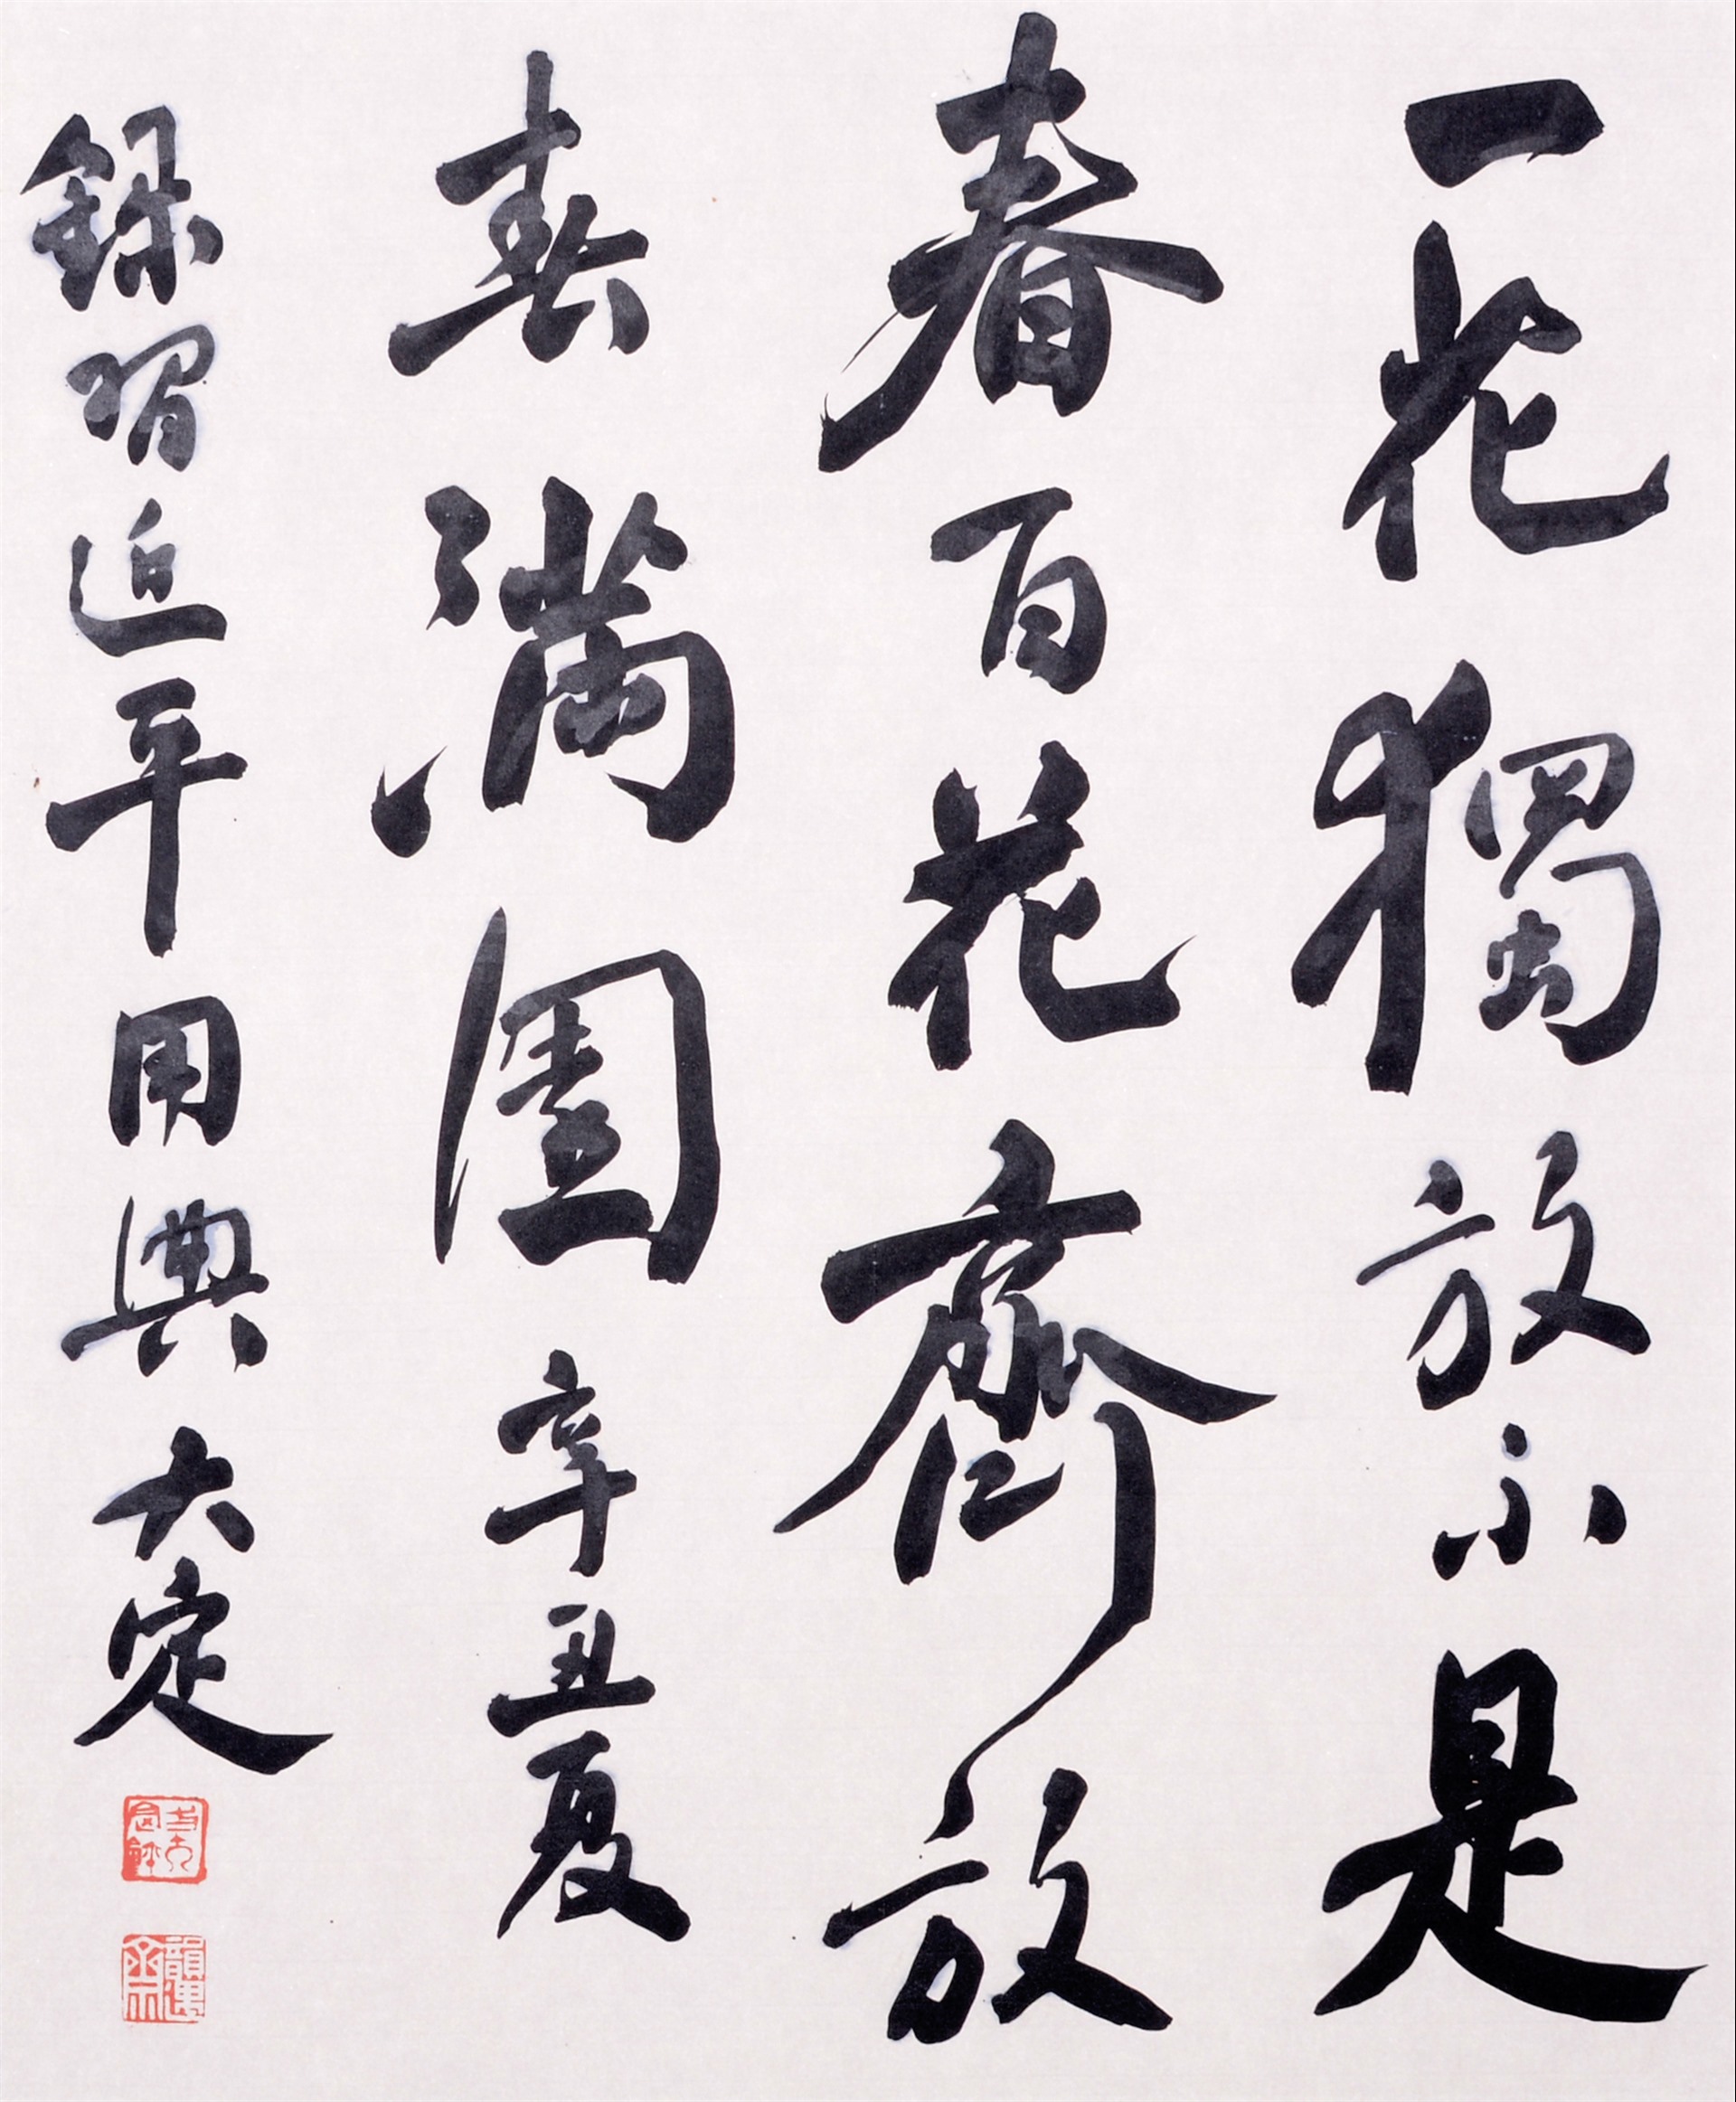 一花獨放不是
春百花齊放
春滿園辛丑夏
錄習近平用典大定